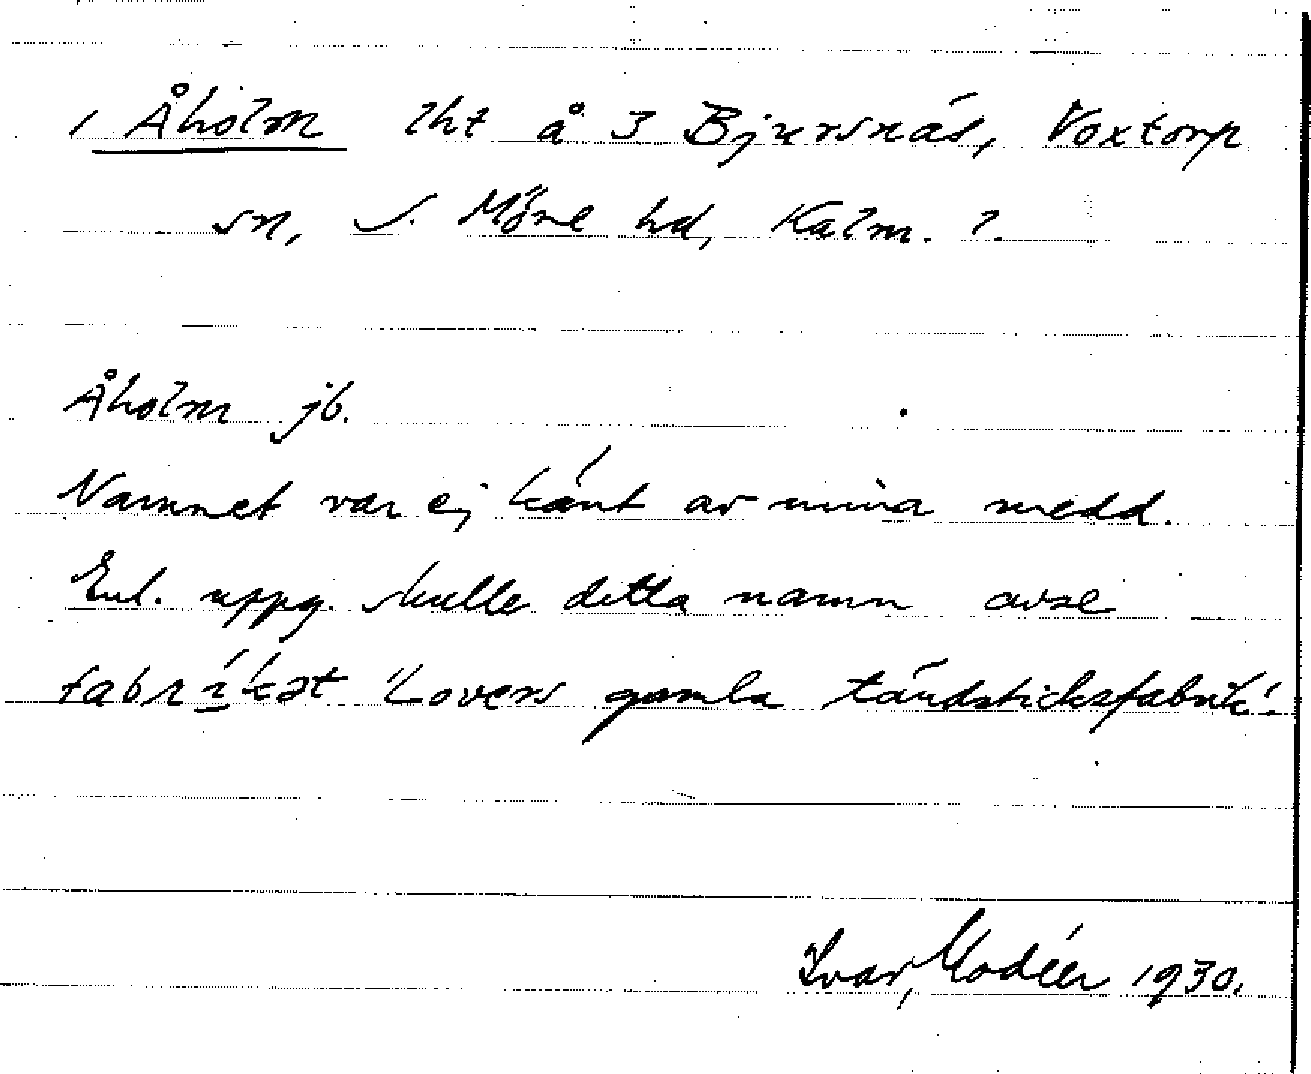 1 Åholm lht å 3 Bjursnäs, Voxtorp
sn, S. Möre hd, Kalm. l.
Åholm jb.
Namnet var ej känt av mina medd.
Enl. uppg. skulle detta namn avse
fabríkǝt "Lovers gamla tändsticksfabrik".
Ivar Modéer 1930.